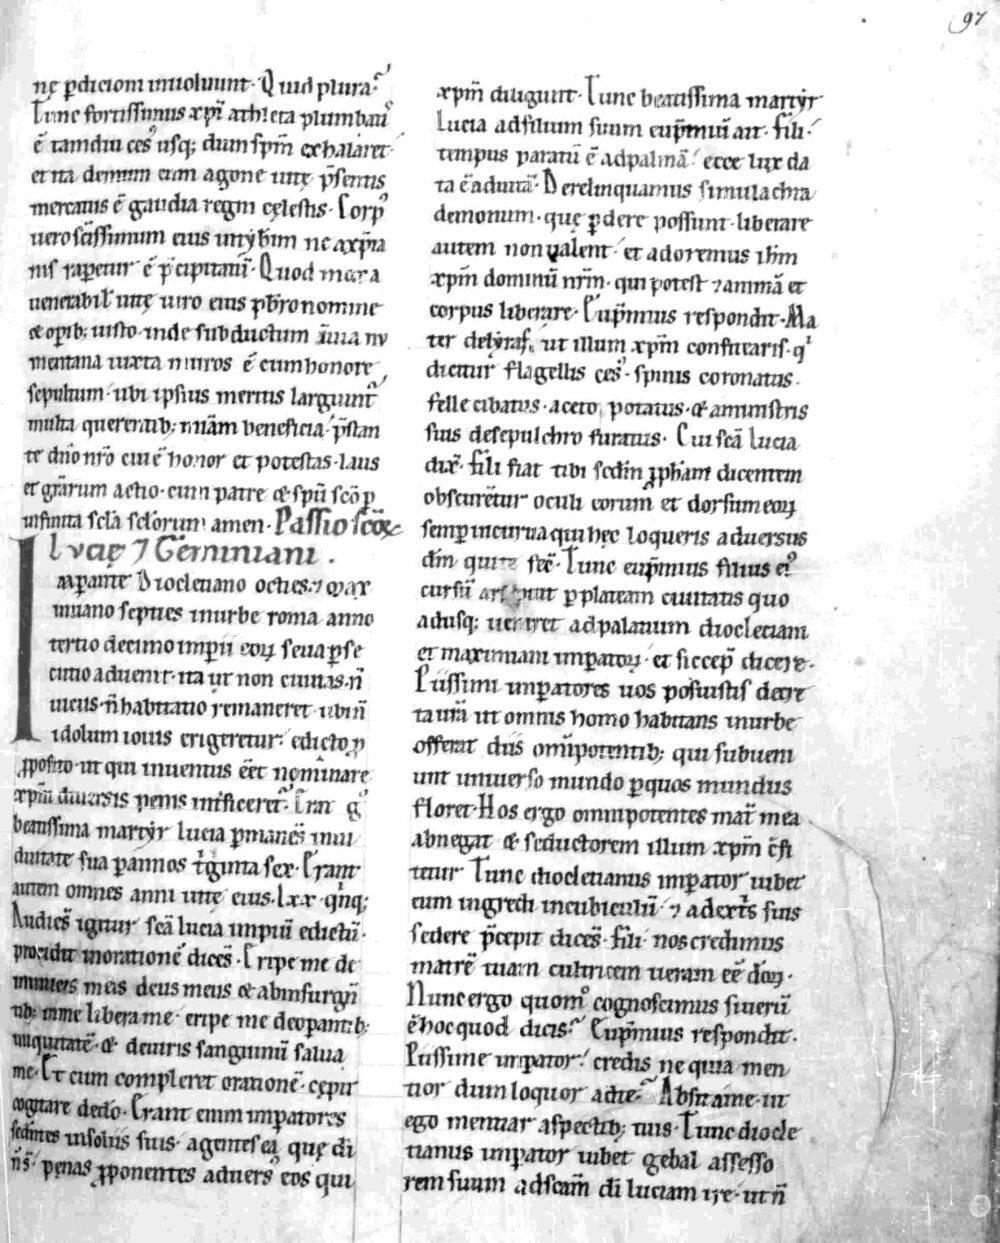 97
nę p̄diciom inuoluunt· Quid plura·
Tunc fortissimus xp̄i athleta plumbatis
ē tamdiu cesꝰ usq; dum sp̄m exhalaret·
et ita demum eum agone uitę p̄sentis
mercatus ē gaudia regni cęlestis· Corpꝰ
uero sc̄issimum eius untẏbrim ne a xp̄ia
nis raperetur ē p̄cipitatū· Quod mox a
uenerabili uitę uiro eius p̄bro nomine
& opib; iusto· inde subductum in uia nu
mentana iuxta muros ē cum honore
sepultum· ubi ipsius meritis largiunt᷑
multa querentib; miām beneficia· p̄stan
te dn̄o nr̄o cui ē honor et potestas· laus
et gr̄arum actio· cum patre & sp̄u sc̄o p̄
infinita scl̄a scl̄orum amen· Passio sc̄oꝝ
Lucię ⁊ Geminiani.
Imperante Diocletiano octies· ⁊ Max
imiano septies in urbe roma anno
tertio decimo imp̄ii eoꝝ seua p̄se
cutio aduenit· ita ut non ciuitas· n̄
uicus· n̄ habitatio remaneret· ubi n̄
idolum iouis erigeretur; edicto p̄
ꝓposito· ut qui inuentus eēt nominare
xp̄m diuersis penis inficeretꝰ· Erat g̊
beatissima martẏr lucia p̄manēs in ui
duitate sua p̄ annos triginta sex· Erant
autem omnes anni uitę eius· Lxx· q̇nq;
Audiēs igitur sc̄a lucia impiū edictū·
procidit in orationē dicēs· Eripe me de
inimicis meis deus meus & ab insurgn̄
tib; in me libera me· eripe me de opantib;
iniquitatē· & de uiris sanguinū salua
me· Et cum compleret orationē· cępit
cogitare de do· Erant enim imperatores
sedentes in soliis suis· agentes ea quę di
n̄s· penas ꝓponentes aduersꝰ eos qui
xp̄m diligunt· Tunc beatissima martẏr
Lucia ad filium suum eup̄miū ait· fili·
tempus paratū ē ad palmā· ecce lux da
ta ē ad uitā· Derelinquamus simulachra
demonum· quę p̄dere possunt· liberare
autem non ualent· et adoremus ih̄m
xp̄m dominū nr̄m· qui potest ⁊ animā et
corpus liberare· Eup̄mius respondit· Ma
ter delẏras· ut illum xp̄m confitearis· qͥ
dicitur flagellis cesꝰ· spinis coronatus·
felle cibatus· aceto potatus· & a ministris
suis de sepulchro furatus· Cui sc̄a Lucia
dix̄· fili fiat tibi sed̄m ꝓph̄am dicentem
obscurēt᷑ur oculi eorum et dorsum eoꝝ
semp̄ incurua qui hęc loqueris aduersus
dm̄ qui te fēc· Tunc eup̄mius filius eiꝰ
cursū p̄ plateam ciuitatis quo
adusq; ueniret ad palatium diocletiani
et maximiani imperatoꝝ· et sic cep̄ dicere·
Piissimi imp̄atores uos posuistis decre
ta ur̄a ut omnis homo habitans in urbe
offerat diis omīpotentib; qui subueni
unt uniuerso mundo p̄ quos mundus
floret· Hos ergo omnipotentes mat̄ mea
abnegat & seductorem illum xp̄m c̄fi
tetur· Tunc diocletianus imp̄ator iubet
eum ingredi in cubiculū· ⁊ a dextr̄s suis
sedere p̄cepit dicēs· fili· nos credimus
matrē tuam cultricem ueram eē doꝝ·
Nunc ergo quomͦ cognoscimus si uerū
ē hoc quod dicis· Eup̄mius respondit·
Piissime imp̄ator· credis ne quia men
tior dum loquor ad te· Absit a me· ut
ego mentiar aspectib; tuis· Tunc diocle
tianus imp̄ator iubet gebal assesso
rem suum ad scām di luciam ire· ut n̄